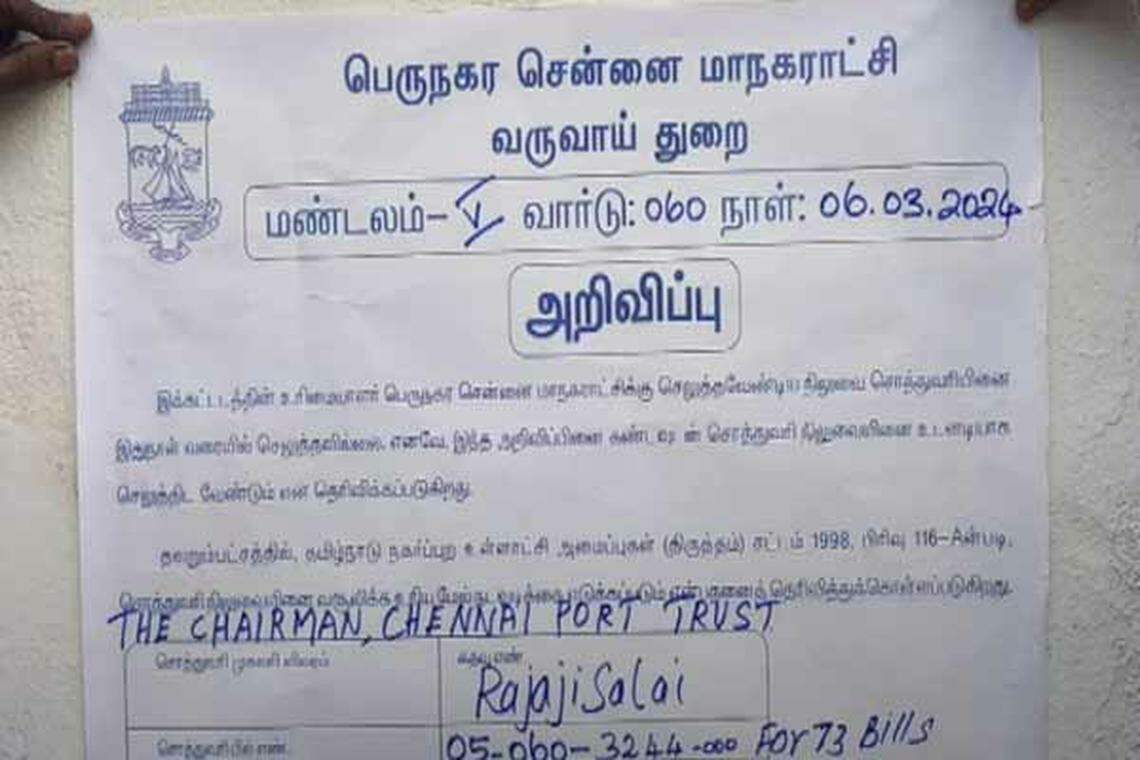 பெருநகர சென்னை மாநகராட்சி
வருவாய் துறை
மண்டலம்- V வார்டு: 060 நாள்: 06.03.2024
அறிவிப்பு
இக்கட்டடத்தின் உரிமையாளர் பெருநகர சென்னை மாநகராட்சிக்கு செலுத்தவேண்டிய நிலுவை சொத்துவரியினை
இதுநாள் வரையில் செலுத்தவில்லை. எனவே, இந்த அறிவிப்பினை கண்டவுடன் சொத்துவரி நிலுவையினை உடனடியாக
செலுத்திட வேண்டும் என தெரிவிக்கப்படுகிறது.
தவறும்பட்சத்தில், தமிழ்நாடு நகர்ப்புற உள்ளாட்சி அமைப்புகள் (திருத்தம்) சட்டம் 1998, பிரிவு 116-அன்படி,
சொத்துவரி நிலுவையினை வசூலிக்க உரிய மேல்நடவடிக்கை எடுக்கப்படும் என்பதனைத் தெரிவித்துக்கொள்ளப்படுகிறது.
THE CHAIRMAN, CHENNAI PORT TRUST
சொத்துவரி முகவரி விவரம் கதவு எண்
Rajaji Salai
சொத்துவரி பில் எண். 05-060-3244-000 For 73 Bills